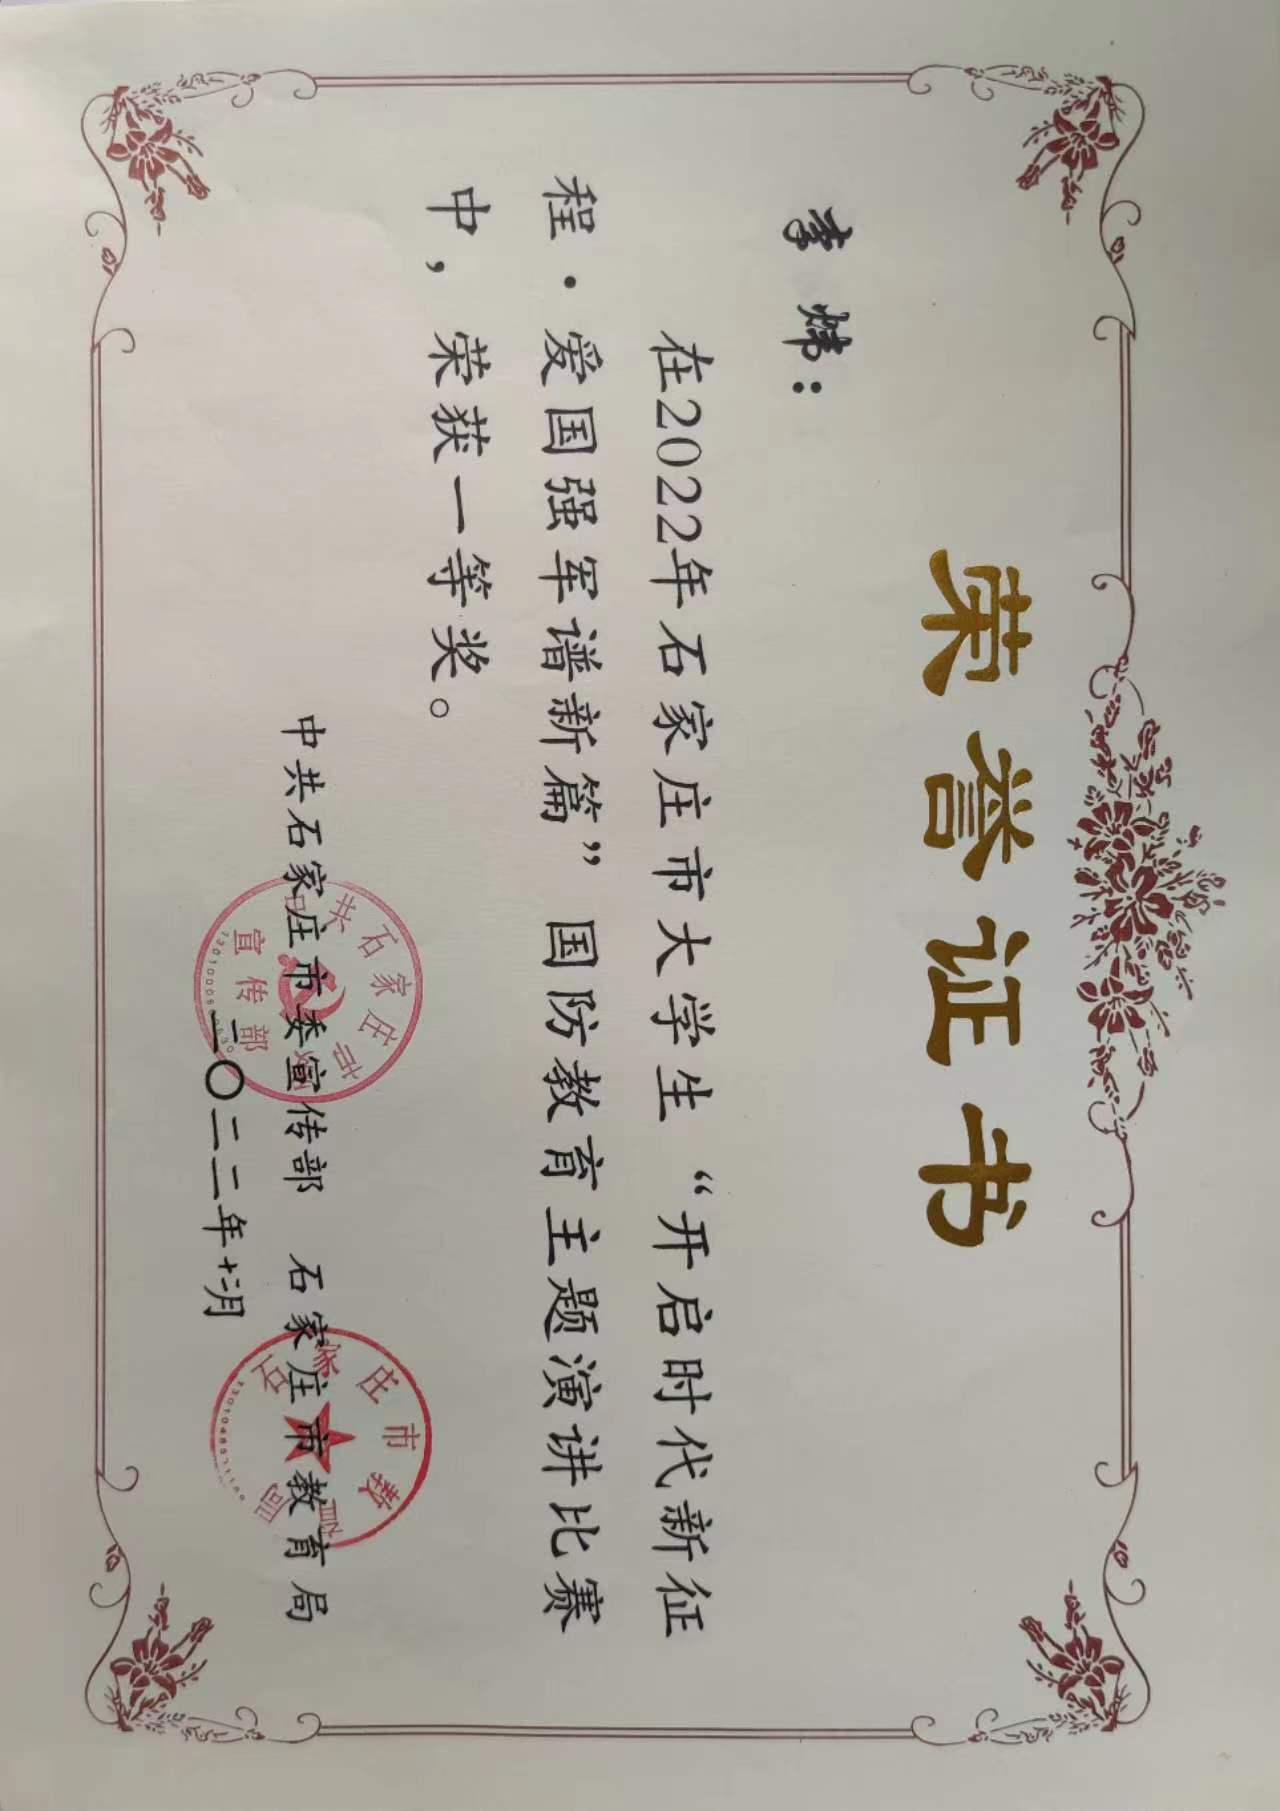 荣誉证书
李炜：
在2022年石家庄市大学生“开启时代新征
程·爱国强军谱新篇”国防教育主题演讲比赛
中，荣获一等奖。
中共石家庄市委宣传部 石家庄市教育局
二〇二二年十二月
中共石家庄市委
宣传部
石家庄市教育局